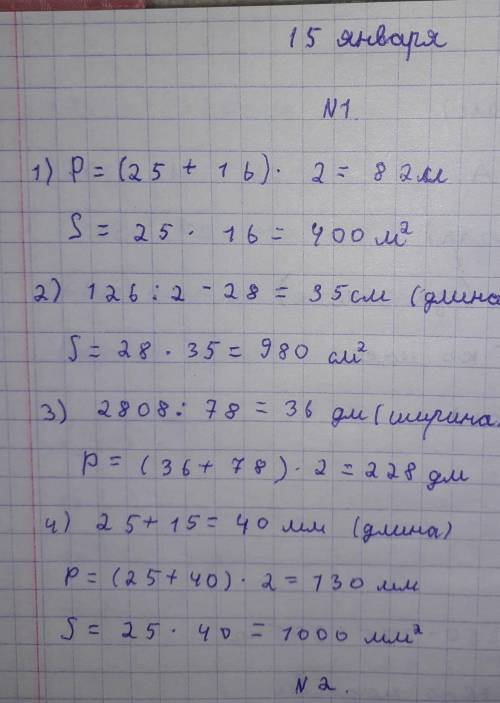 15 января
N1.
1) P = (25 + 16) · 2 = 82 м
S = 25 · 16 = 400 м²
2) 126 : 2 - 28 = 35 см (длина
S = 28 · 35 = 980 см²
3) 2808 : 78 = 36 дм (ширина
P = (36 + 78) · 2 = 228 дм
4) 25 + 15 = 40 мм (длина)
P = (25 + 40) · 2 = 130 мм
S = 25 · 40 = 1000 мм²
N 2.